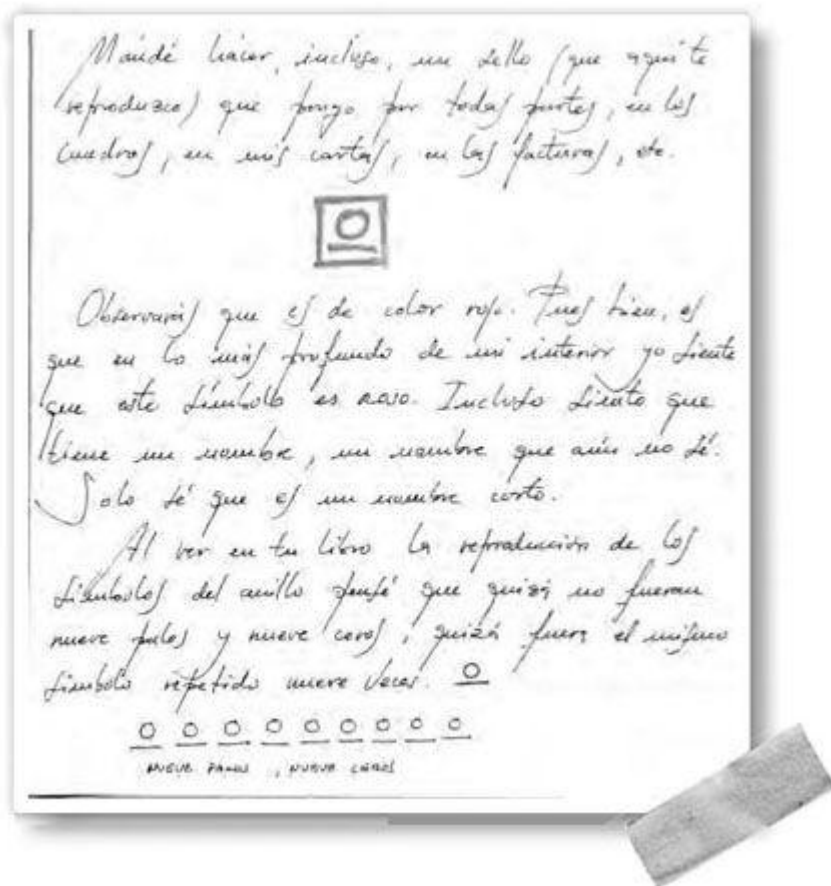 Mandé hacer, incluso, un sello (que aquí te
reproduzco) que pongo por todas partes, en los
cuadros, en mis cartas, en las facturas, etc.
Observarás que es de color rojo. Pues bien, es
que en lo más profundo de mi interior yo siento
que este símbolo es rojo. Incluso siento que
tiene un nombre, un nombre que aún no sé.
Solo sé que es un nombre corto.
Al ver en tu libro la reproducción de los
símbolos del anillo pensé que quizá no fueran
nueve palos y nueve ceros, quizá fuera el mismo
símbolo repetido nueve veces. O
O O O O O O O O O
NUEVE PALOS, NUEVE CEROS